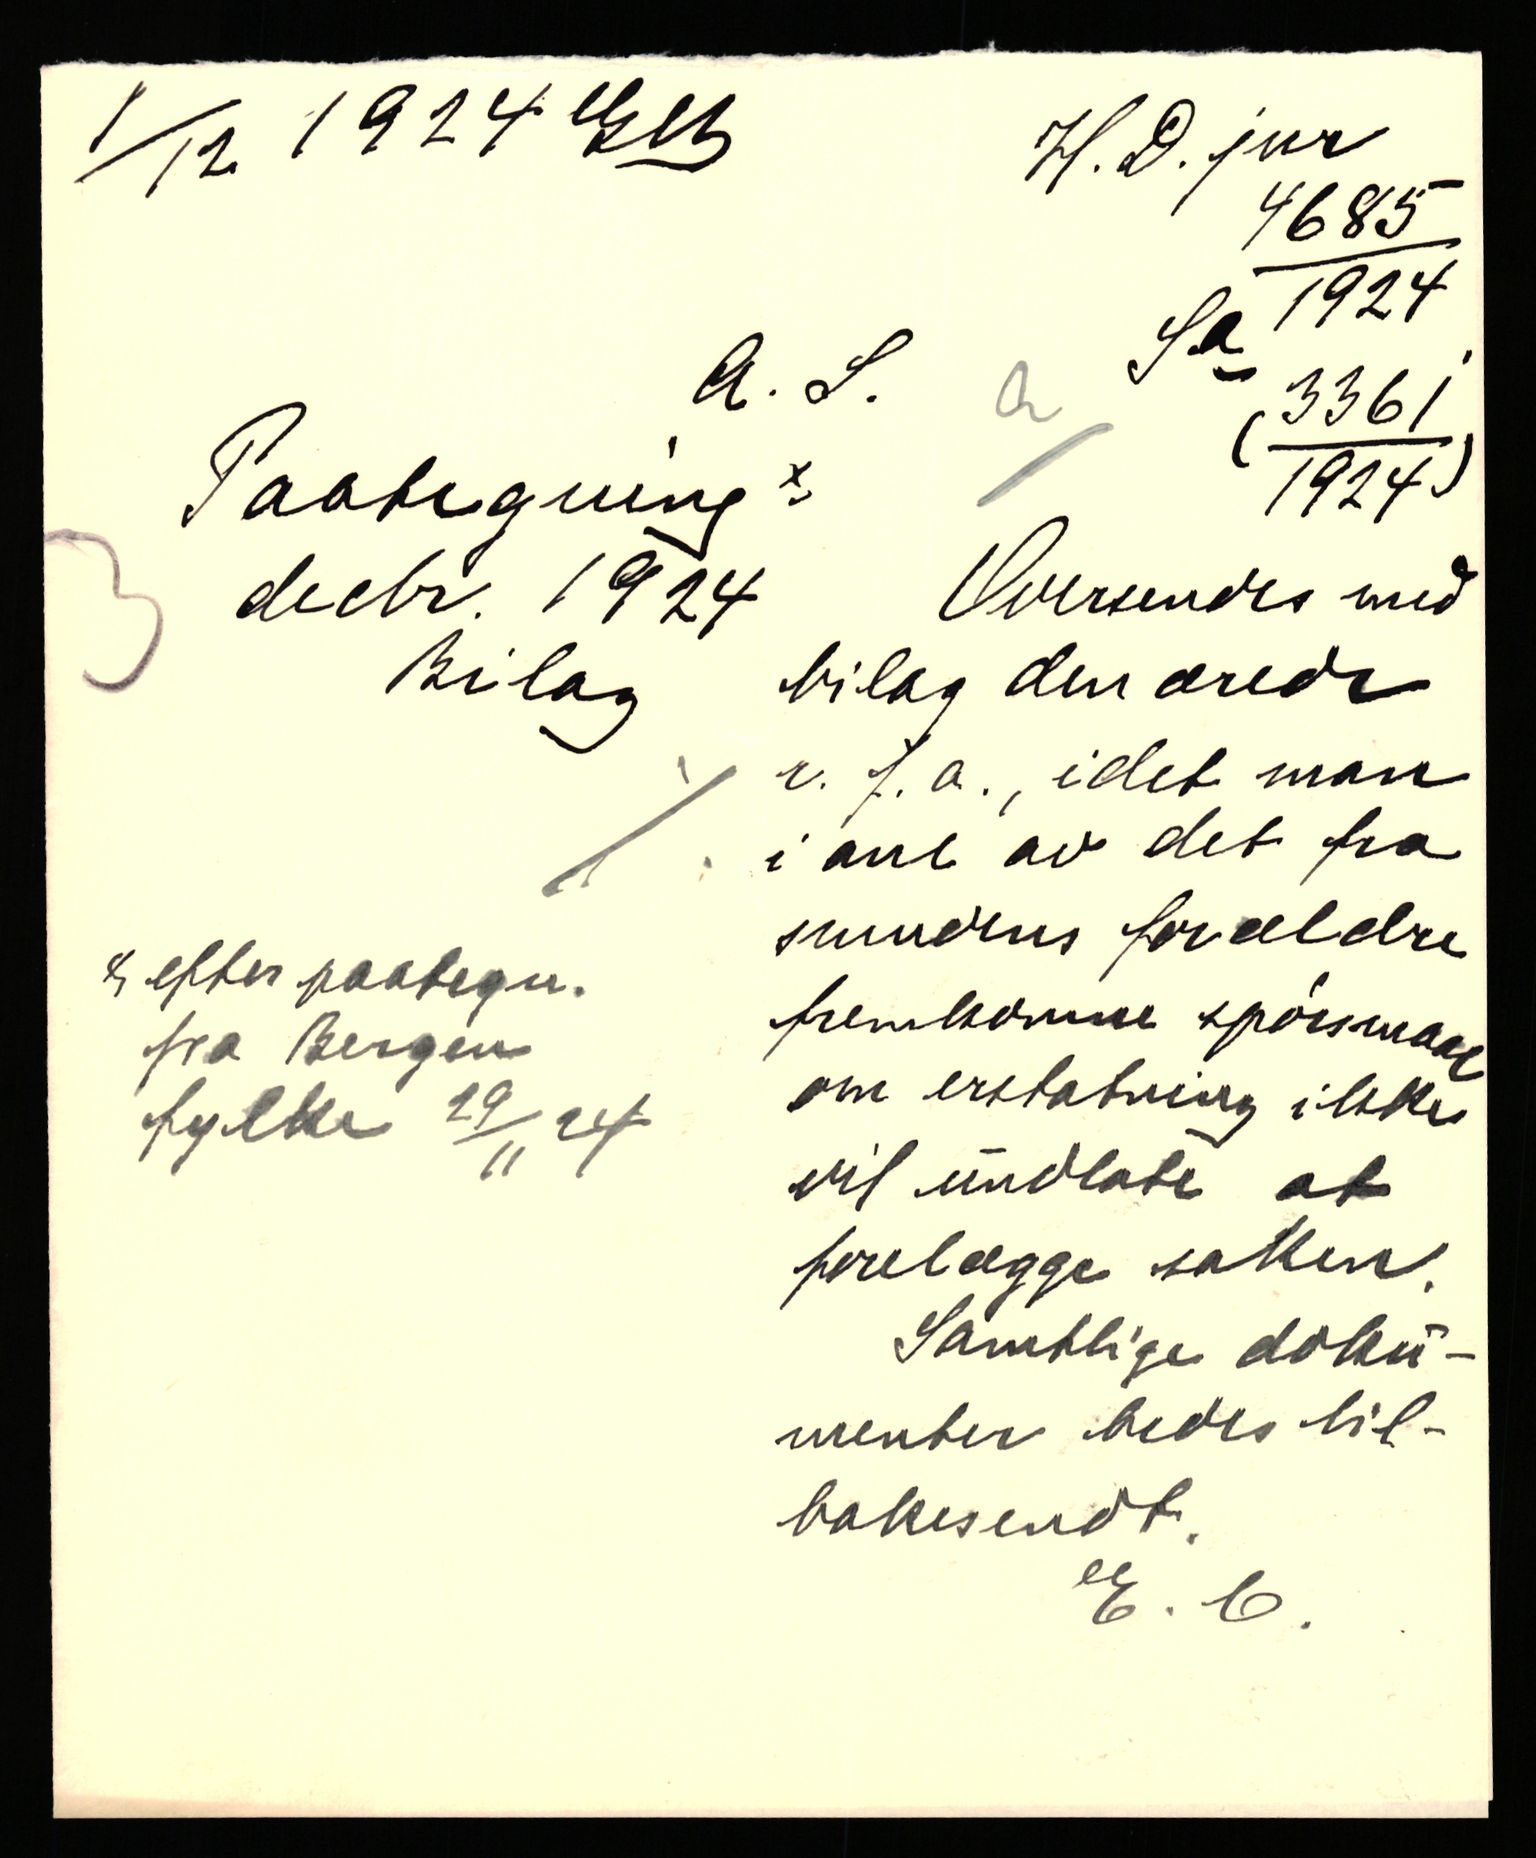 1/12 1924
H. D. jur
4685
1924
Sa
(3361
1924)
A. S.
a
Paategning x
decbr. 1924
Bilag
3
Oversendes med
bilag den ærede
r. f. a., idet man
i anl av det fra
smudens forældre
fremkomne spörsmaal
om erstatning ikke
vil undlate at
forelægge saken.
Samtlige doku-
menter bedes til-
bakesendt.
E. C.
x efter paategn.
fra Bergen
fylke 29/11 24